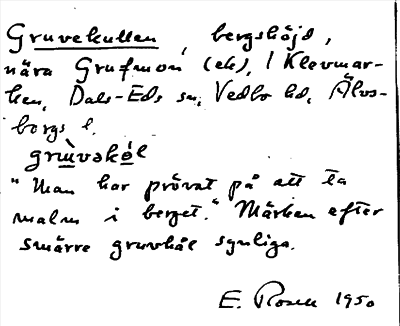 Gruvekullen, bergshöjd,
nära Grufmon (ek), / Klevmar-
ken, Dals-Eds sn, Vedbo hd, Älvs-
borgs l.
grùvəkól
"Man har prövat på att ta
malm i berget." Märken efter
smärre gruvhål synliga.
E. Rosell 1950